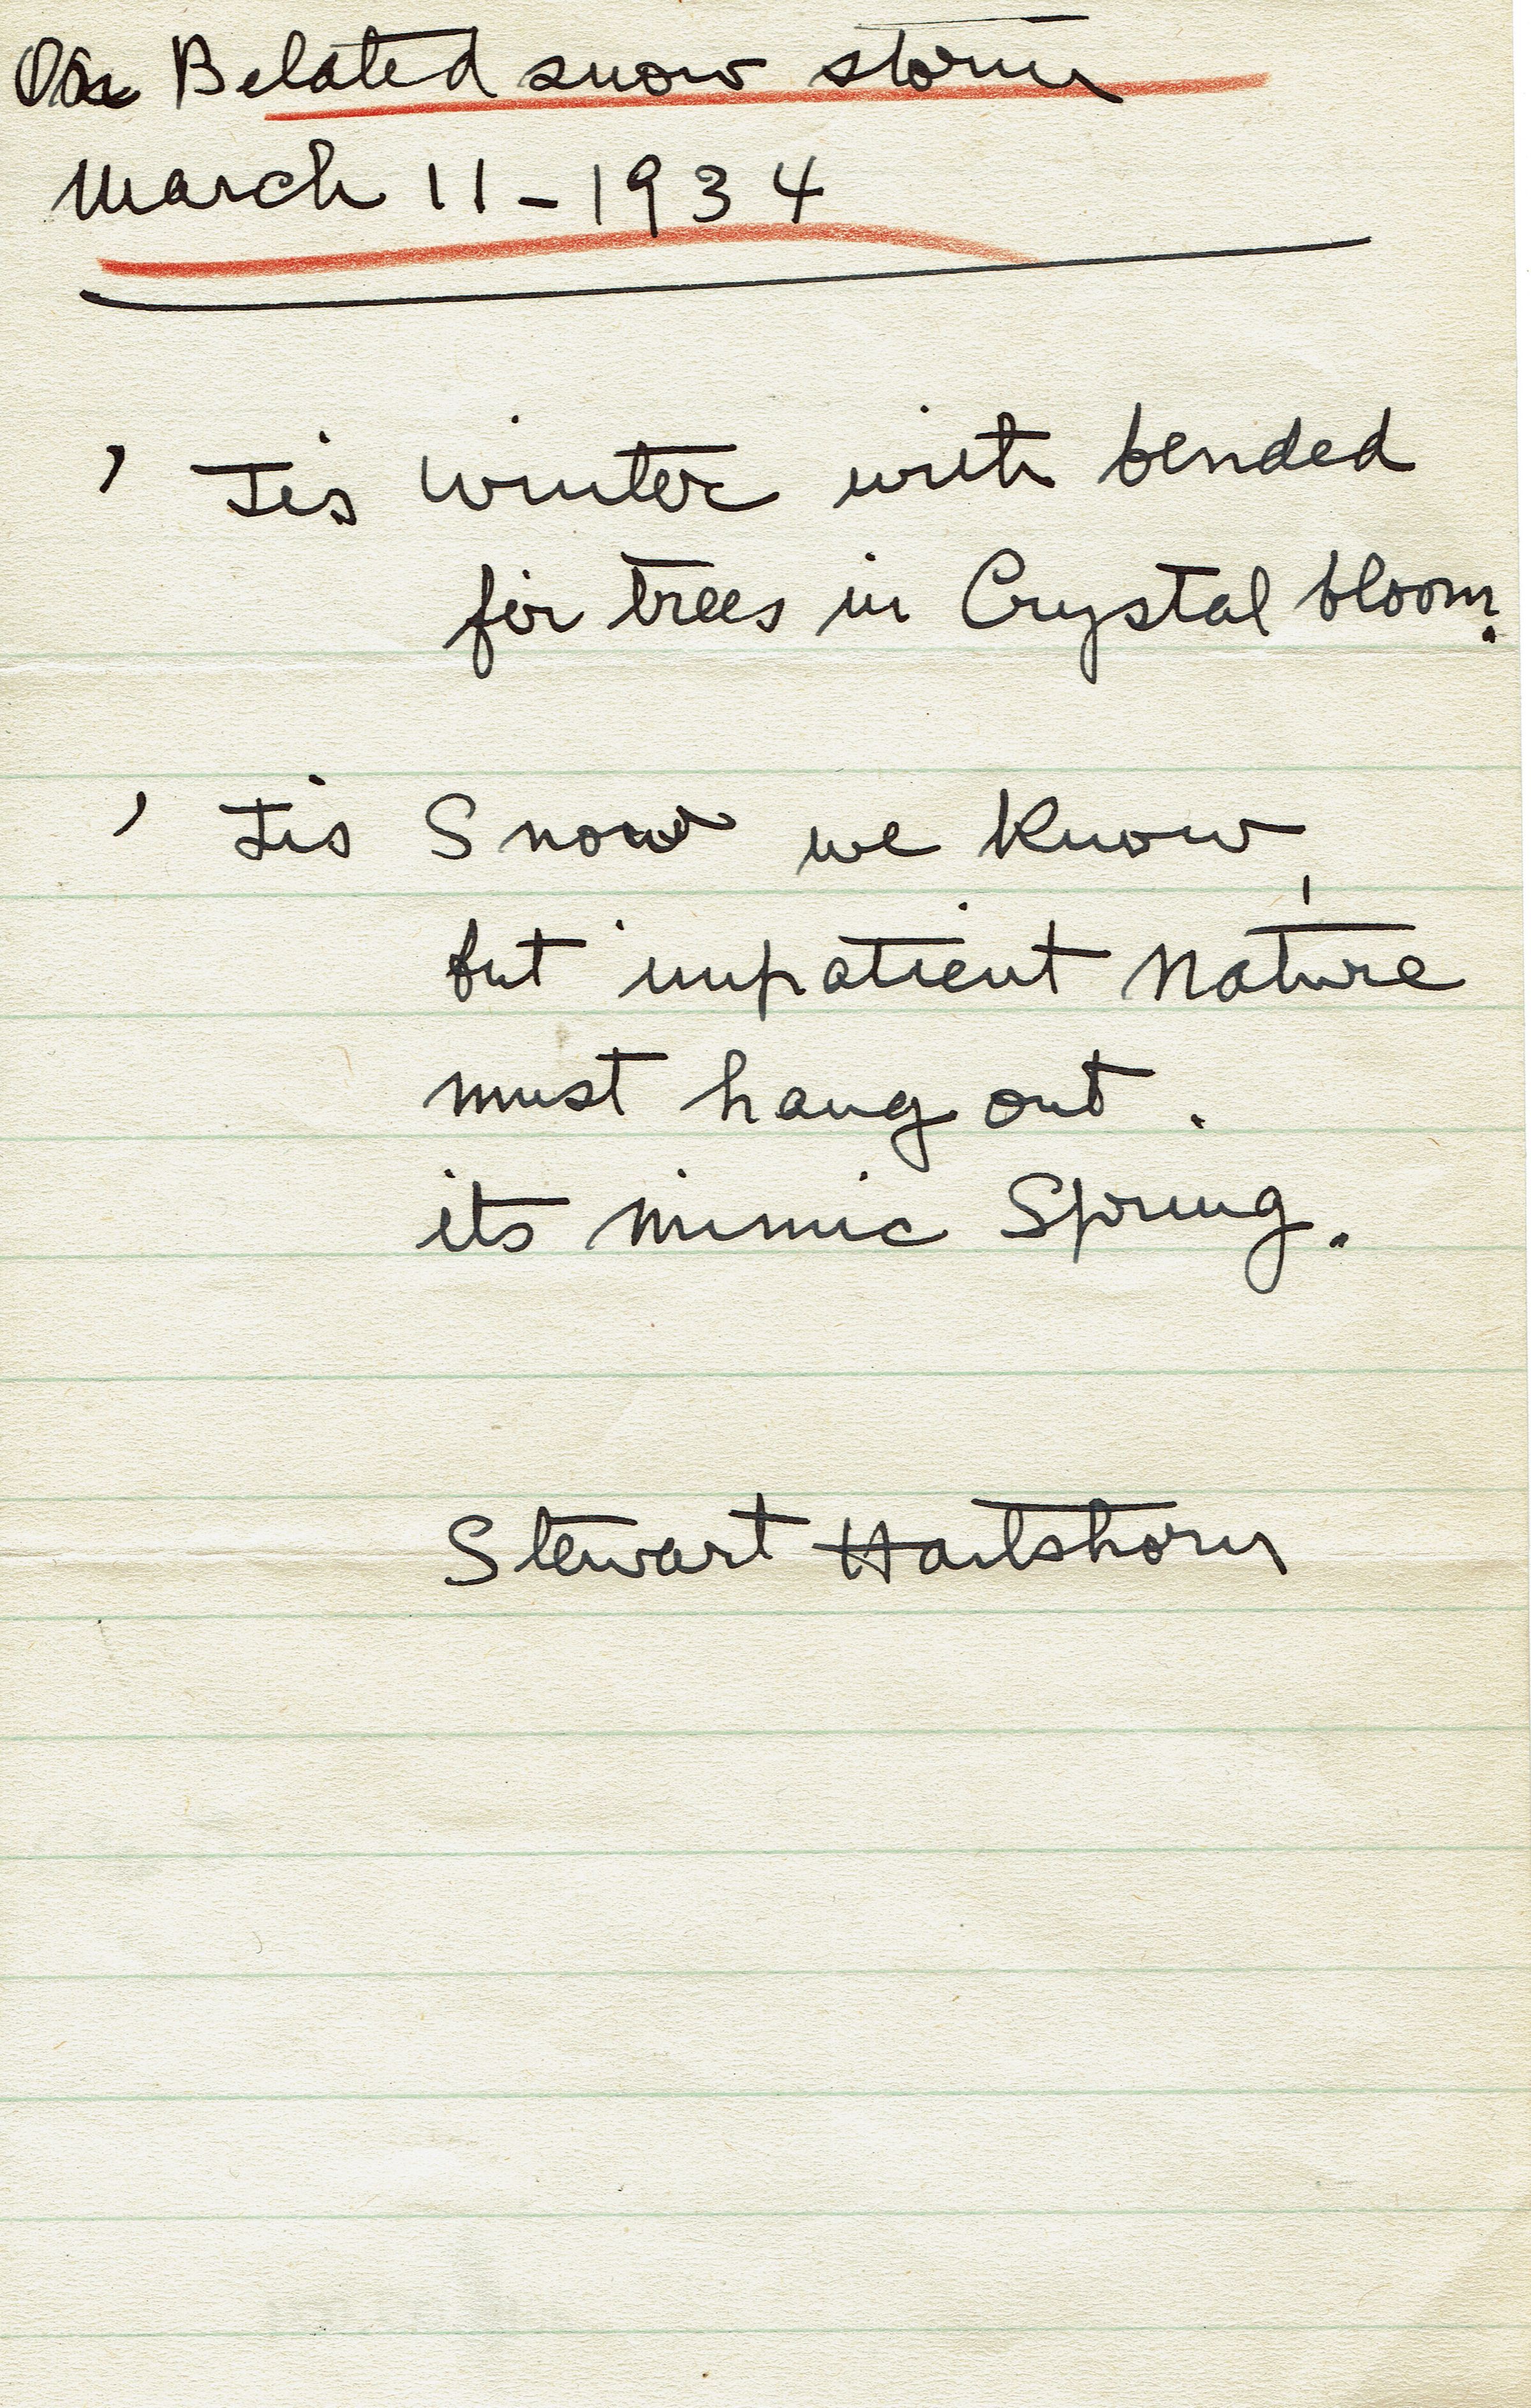 On Belated snow storm
March 11-1934
'Tis Winter with bended
fir trees in Crystal bloom.
'Tis Snow we know,
but impatient Nature
must hang out.
its mimic Spring.
Stewart Hartshorn